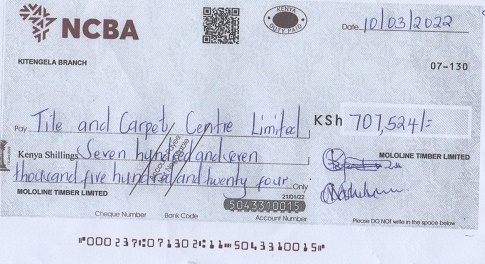 NCBA
KENYA
DUTY PAID
Date 10/03/2022
KITENGELA BRANCH
07-130
Pay Tile and Carpet Centre Limited KSh 707,524/=
Kenya Shillings Seven hundred and seven
thousand five hundred and twenty four Only
MOLOLINE TIMBER LIMITED
MOLOLINE TIMBER LIMITED
21/01/22
5043310015
Cheque Number Bank Code Account Number
Please DO NOT write in the space below